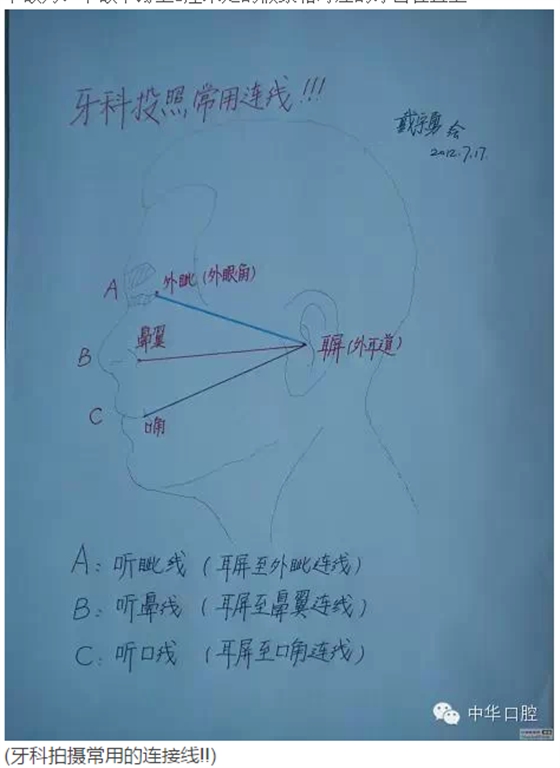 牙科投照常用连线!!!
绘
2012.7.17.
A
外眦(外眼角)
B
鼻翼
耳屏(外耳道)
C
口角
A：听眦线（耳屏至外眦连线）
B：听鼻线（耳屏至鼻翼连线）
C：听口线（耳屏至口角连线）
中华口腔
(牙科拍摄常用的连接线!!)